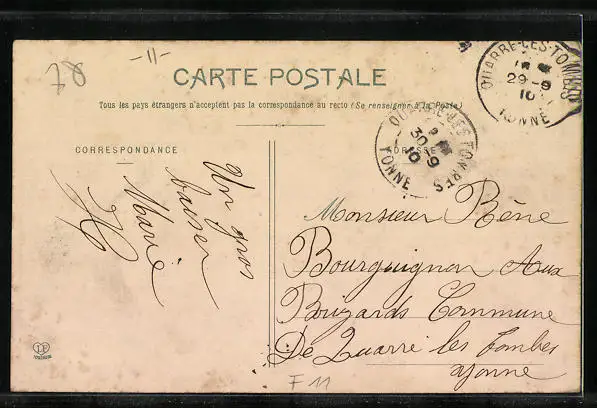 78
-11-
CARTE POSTALE
Tous les pays étrangers n'acceptent pas la correspondance au recto (Se renseigner à la Poste)
QUARRE-LES-TOMBES
29-9
10
YONNE
QUARRE-LES-TOMBES
30-9
10
YONNE
CORRESPONDANCE
ADRESSE
Un gros
baiser
Marie
Monsieur Rène
Bourguignon Aux
Buzards Commune
De Quarré les Tombes
yonne
F 11